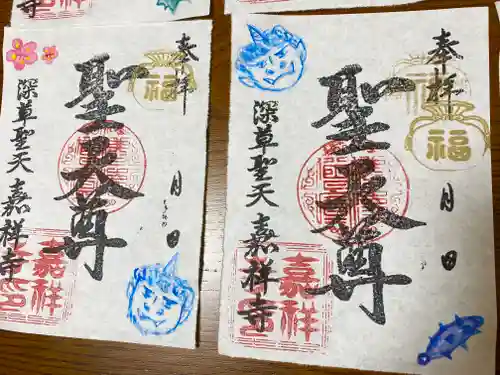 寺
奉拝
福
聖天尊
月 日
深草聖天 嘉祥寺
嘉祥
奉拝
福
聖天尊
月 日
深草聖天 嘉祥寺
嘉祥